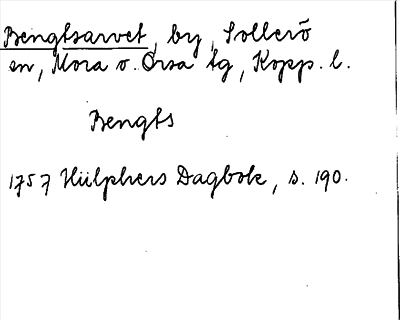 Bengtsarvet, by, Sollerö
en, Mora o. Orsa tg, Kopp. l.
Bengts
1757 Hülphers Dagbok, s. 190.